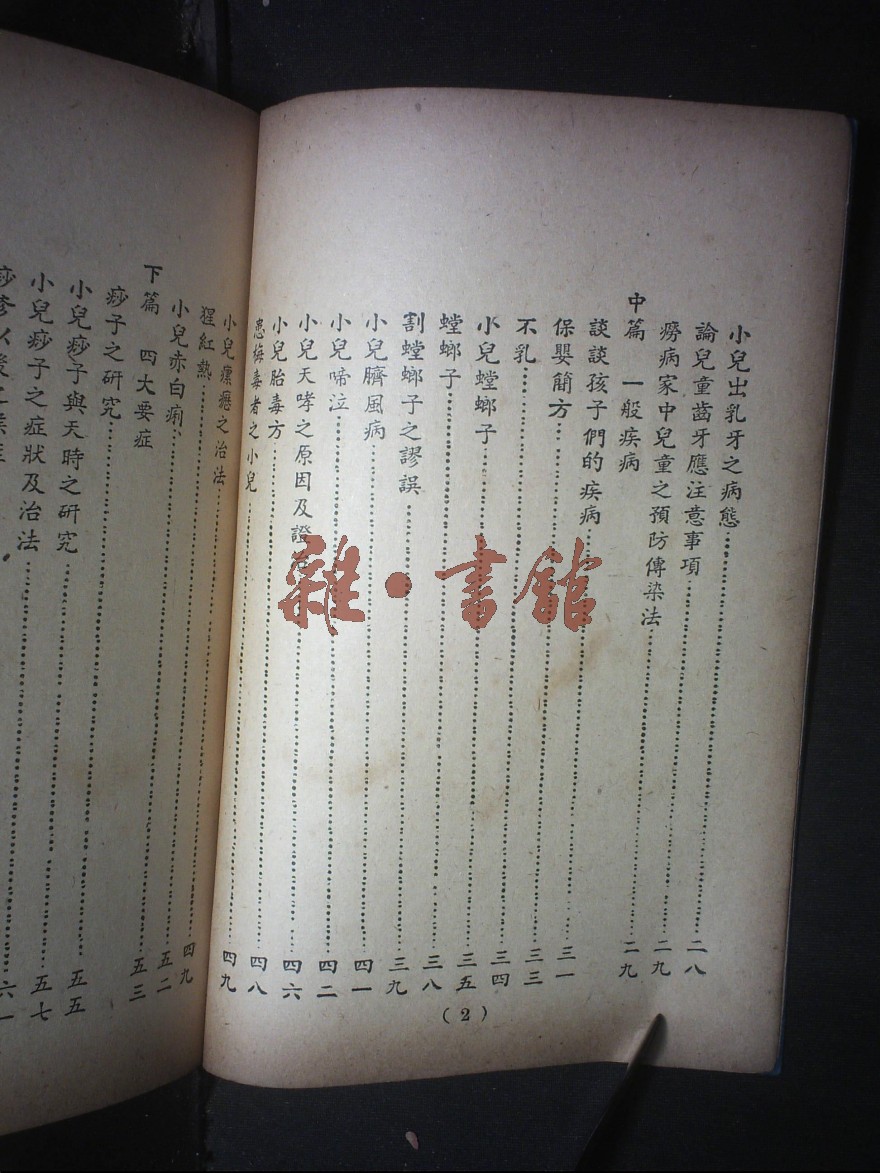 小兒出乳牙之病態 二八
論兒童齒牙應注意事項 二九
癆病家中兒童之預防傳染法 二九
中篇 一般疾病
談談孩子們的疾病 三一
保嬰簡方 三三
不乳 三四
小兒螳螂子 三五
螳螂子 三八
割螳螂子之謬誤 三九
小兒臍風病 四一
小兒啼泣 四二
小兒天哮之原因及證 四六
小兒胎毒方 四八
患梅毒者之小兒 四九
(2)
小兒瘰癧之治法 四九
猩紅熱 五二
小兒赤白痢 五三
下篇 四大要症
痧子之研究 五五
小兒痧子與天時之研究 五七
小兒痧子之症狀及治法 六一
雜·書館